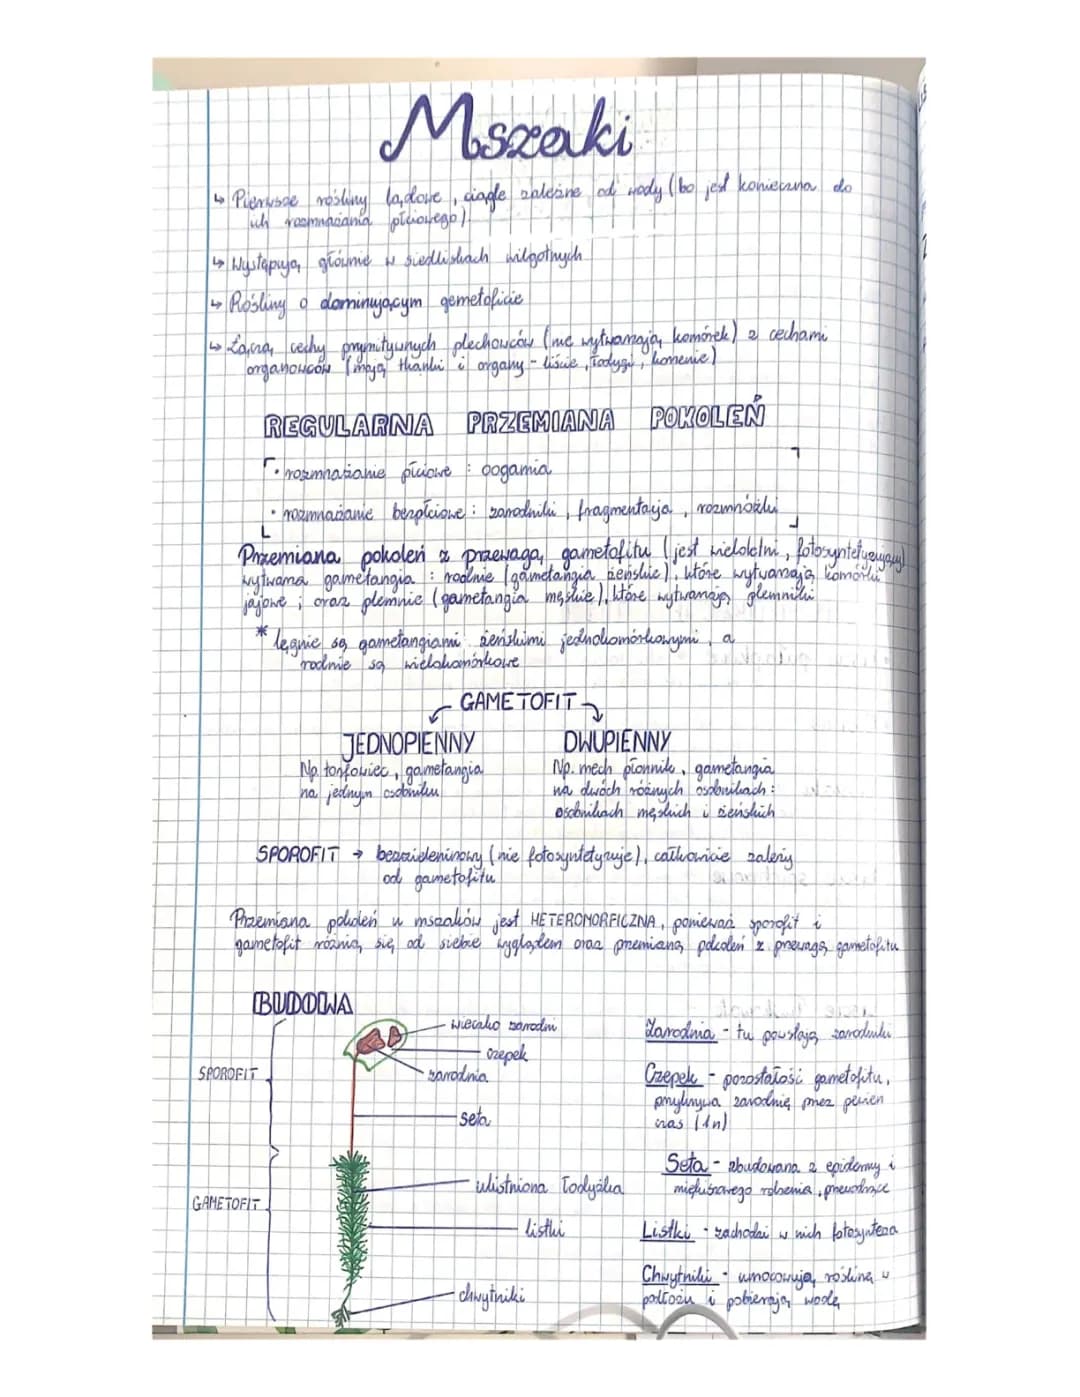 Mszaki
↳ Pierwsze rośliny lądowe, ciągle zależne od wody (bo jest konieczna do
ich rozmnażania płciowego).
↳ Występują głównie w siedliskach wilgotnych
↳ Rośliny o dominującym gametoficie
↳ Łączą cechy prymitywnych plechowców (nie wytwarzają komórek) z cechami
organowców (mają tkanki i organy - liście, łodygi, korzenie)
REGULARNA PRZEMIANA POKOLEŃ
• rozmnażanie płciowe : oogamia
• rozmnażanie bezpłciowe : zarodniki, fragmentacja, rozmnóżki
Przemiana pokoleń z przewagą gametofitu (jest wieloletni, fotosyntetyzujący)
wytwarza gametangia : rodnie (gametangia żeńskie), które wytwarzają komórki
jajowe ; oraz plemnie (gametangia męskie), które wytwarzają plemniki
* lęgnie są gametangiami żeńskimi jednokomórkowymi, a
rodnie są wielokomórkowe
GAMETOFIT
JEDNOPIENNY
Np. torfowiec, gametangia
na jednym osobniku
DWUPIENNY
Np. mech płonnik, gametangia
na dwóch różnych osobnikach :
osobnikach męskich i żeńskich
SPOROFIT → bezzieleniowy (nie fotosyntetyzuje), całkowicie zależy
od gametofitu
Przemiana pokoleń u mszaków jest HETEROMORFICZNA, ponieważ sporofit i
gametofit różnią się od siebie wyglądem oraz przemianą pokoleń z przewagą gametofitu
BUDOWA
SPOROFIT
GAMETOFIT
wieczko zarodni
czepek
zarodnia
seta
ulistniona łodyżka
listki
chwytniki
Zarodnia - tu powstają zarodniki
Czepek - pozostałość gametofitu,
przykrywa zarodnię przez pewien
czas (1n)
Seta - zbudowana z epidermy i
miękiszowego rdzenia, przewodzące
Listki - zachodzi w nich fotosynteza
Chwytniki - umocowują roślinę w
podłożu i pobierają wodę